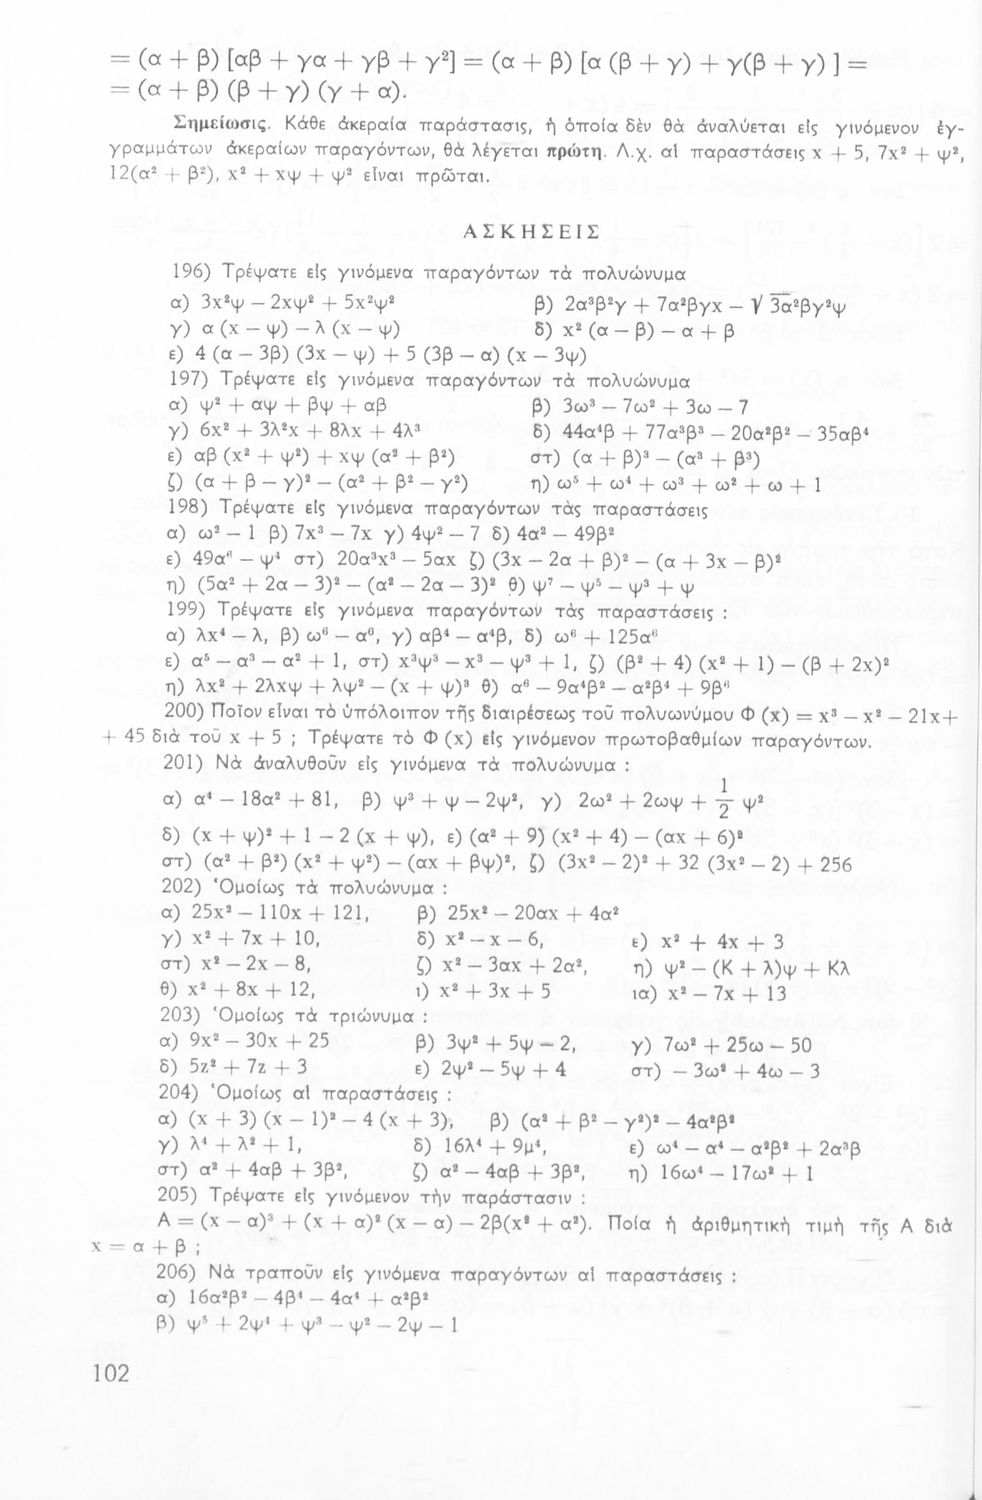 = (α + β) [αβ + γα + γβ + γ²] = (α + β) [α (β + γ) + γ(β + γ) ] =
= (α + β) (β + γ) (γ + α).
Σημείωσις. Κάθε ἀκεραία παράστασις, ἡ ὁποία δὲν θὰ ἀναλύεται εἰς γινόμενον ἐγ-
γραμμάτων ἀκεραίων παραγόντων, θὰ λέγεται πρώτη. Λ.χ. αἱ παραστάσεις x + 5, 7x² + ψ²,
12(α² + β²), x² + xψ + ψ² εἶναι πρῶται.
ΑΣΚΗΣΕΙΣ
196) Τρέψατε εἰς γινόμενα παραγόντων τὰ πολυώνυμα
α) 3x²ψ – 2xψ² + 5x²ψ² β) 2α³β²γ + 7α²βγx – √3α²βγ²ψ
γ) α (x – ψ) – λ (x – ψ) δ) x² (α – β) – α + β
ε) 4 (α – 3β) (3x – ψ) + 5 (3β – α) (x – 3ψ)
197) Τρέψατε εἰς γινόμενα παραγόντων τὰ πολυώνυμα
α) ψ² + αψ + βψ + αβ β) 3ω³ – 7ω² + 3ω – 7
γ) 6x² + 3λ²x + 8λx + 4λ³ δ) 44α⁴β + 77α³β³ – 20α²β² – 35αβ⁴
ε) αβ (x² + ψ²) + xψ (α² + β²) στ) (α + β)³ – (α³ + β³)
ζ) (α + β – γ)² – (α² + β² – γ²) η) ω⁵ + ω⁴ + ω³ + ω² + ω + 1
198) Τρέψατε εἰς γινόμενα παραγόντων τὰς παραστάσεις
α) ω² – 1 β) 7x³ – 7x γ) 4ψ² – 7 δ) 4α² – 49β²
ε) 49α⁶ – ψ⁴ στ) 20α³x³ – 5αx ζ) (3x – 2α + β)² – (α + 3x – β)²
η) (5α² + 2α – 3)² – (α² – 2α – 3)² θ) ψ⁷ – ψ⁵ – ψ³ + ψ
199) Τρέψατε εἰς γινόμενα παραγόντων τὰς παραστάσεις :
α) λx⁴ – λ, β) ω⁶ – α⁶, γ) αβ⁴ – α⁴β, δ) ω⁶ + 125α⁶
ε) α⁵ – α³ – α² + 1, στ) x³ψ³ – x³ – ψ³ + 1, ζ) (β² + 4) (x² + 1) – (β + 2x)²
η) λx² + 2λxψ + λψ² – (x + ψ)³ θ) α⁶ – 9α⁴β² – α²β⁴ + 9β⁶
200) Ποῖον εἶναι τὸ ὑπόλοιπον τῆς διαιρέσεως τοῦ πολυωνύμου Φ (x) = x³ – x² – 21x+
+ 45 διὰ τοῦ x + 5 ; Τρέψατε τὸ Φ (x) εἰς γινόμενον πρωτοβαθμίων παραγόντων.
201) Νὰ ἀναλυθοῦν εἰς γινόμενα τὰ πολυώνυμα :
α) α⁴ – 18α² + 81, β) ψ³ + ψ – 2ψ², γ) 2ω² + 2ωψ + 1/2 ψ²
δ) (x + ψ)² + 1 – 2 (x + ψ), ε) (α² + 9) (x² + 4) – (αx + 6)²
στ) (α² + β²) (x² + ψ²) – (αx + βψ)², ζ) (3x² – 2)² + 32 (3x² – 2) + 256
202) Ὁμοίως τὰ πολυώνυμα :
α) 25x² – 110x + 121, β) 25x² – 20αx + 4α²
γ) x² + 7x + 10, δ) x² – x – 6, ε) x² + 4x + 3
στ) x² – 2x – 8, ζ) x² – 3αx + 2α², η) ψ² – (Κ + λ)ψ + Κλ
θ) x² + 8x + 12, ι) x² + 3x + 5 ια) x² – 7x + 13
203) Ὁμοίως τὰ τριώνυμα :
α) 9x² – 30x + 25 β) 3ψ² + 5ψ – 2, γ) 7ω² + 25ω – 50
δ) 5z² + 7z + 3 ε) 2ψ² – 5ψ + 4 στ) – 3ω² + 4ω – 3
204) Ὁμοίως αἱ παραστάσεις :
α) (x + 3) (x – 1)² – 4 (x + 3), β) (α² + β² – γ²)² – 4α²β²
γ) λ⁴ + λ² + 1, δ) 16λ⁴ + 9μ⁴, ε) ω⁴ – α⁴ – α²β² + 2α³β
στ) α² + 4αβ + 3β², ζ) α² – 4αβ + 3β², η) 16ω⁴ – 17ω² + 1
205) Τρέψατε εἰς γινόμενον τὴν παράστασιν :
Α = (x – α)³ + (x + α)² (x – α) – 2β(x² + α²). Ποία ἡ ἀριθμητικὴ τιμὴ τῆς Α διὰ
x = α + β ;
206) Νὰ τραποῦν εἰς γινόμενα παραγόντων αἱ παραστάσεις :
α) 16α²β² – 4β⁴ – 4α⁴ + α²β²
β) ψ⁵ + 2ψ⁴ + ψ³ – ψ² – 2ψ – 1
102